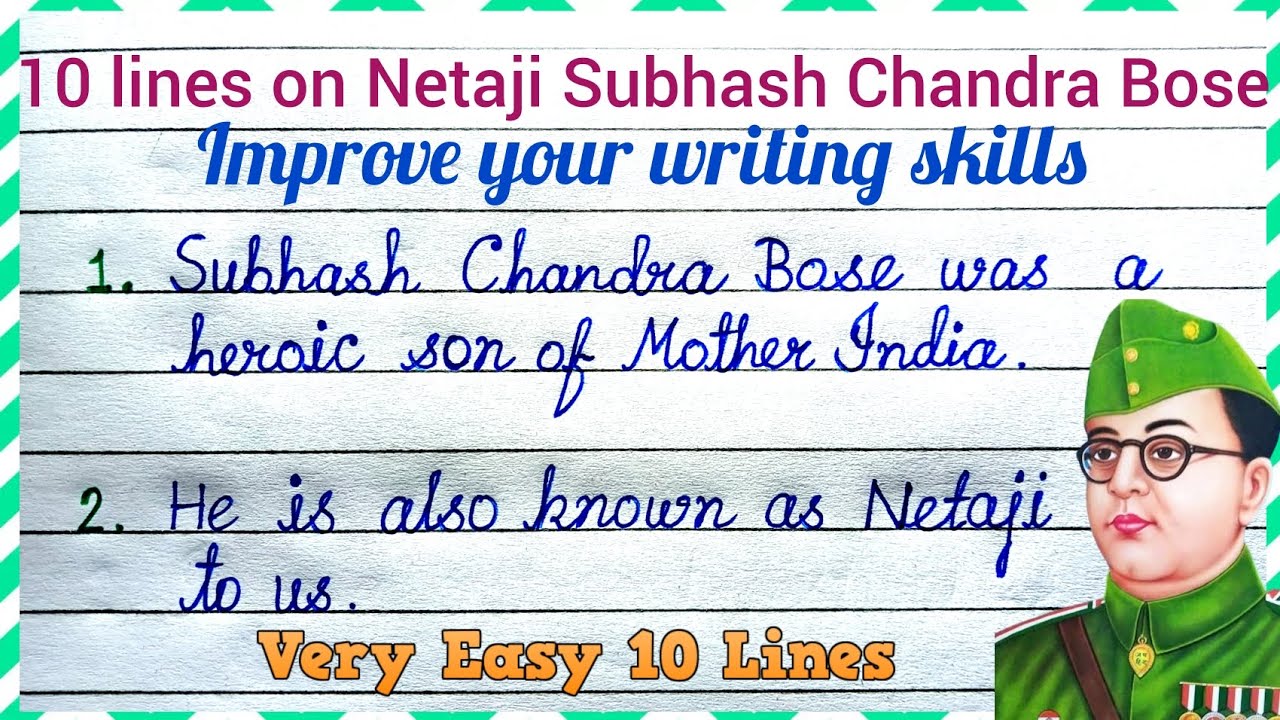 10 lines on Netaji Subhash Chandra Bose
Improve your writing skills
1. Subhash Chandra Bose was a
heroic son of Mother India.
2. He is also known as Netaji
to us.
Very Easy 10 Lines